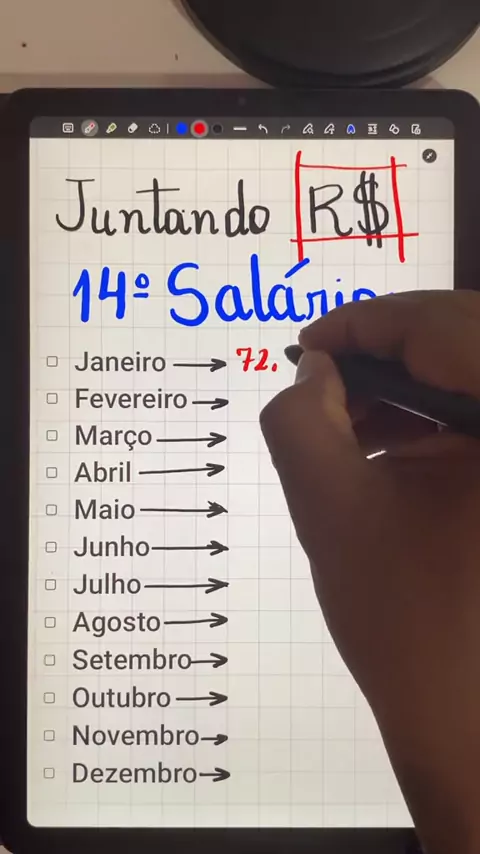 Juntando R$
14º Salário
Janeiro → 72.
Fevereiro →
Março →
Abril →
Maio →
Junho →
Julho →
Agosto →
Setembro →
Outubro →
Novembro →
Dezembro →